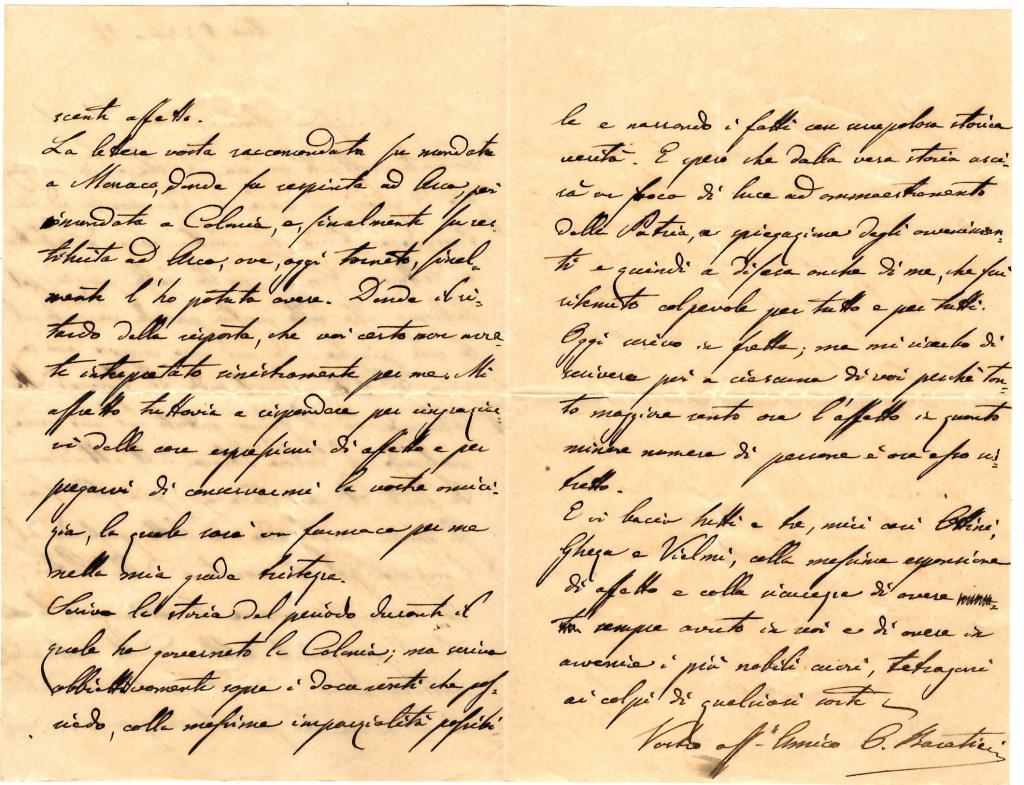 scente affetto.
La lettera vostra raccomandata fu mandata
a Monaco, donde fu respinta ad Arco, poi
rimandata a Colonia, e, finalmente fu res
tituita ad Arco, ove, oggi tornato, final-
mente l'ho potuta avere. Donde il ri-
tardo della risposta, che voi certo non avre
te interpretato sinistramente per me. Mi
affretto tuttavia a rispondere per ringraziar-
vi delle care espressioni di affetto e per
pregarvi di conservarmi la vostra amici-
zia, la quale sarà un farmaco per me
nella mia grande tristezza.
Scrivo la storia del periodo durante il
quale ho governato la Colonia; ma scrivo
obbiettivamente sopra i documenti che pos-
siedo, colla massima imparzialità possibi
le e narrando i fatti con scrupolosa storica
verità. E spero che dalla vera storia usci-
rà un fioco di luce ad ammaestramento
della Patria, a spiegazione degli avvenimen-
ti e quindi a difesa anche di me, che fui
ritenuto colpevole per tutto e per tutti.
Oggi scrivo in fretta; ma mi riserbo di
scrivere poi a ciascuno di voi perchè tan-
to maggiore sento ora l'affetto in quanto
minore numero di persone è ora esso ri-
stretto.
E vi bacio tutti e tre, miei cari Ottini,
Gheza e Vielmi, colla massima espansione
di affetto e colla sicurezza di avere
sempre avuto in voi e di avere in
avvenire i più nobili cuori, tetragoni
ai colpi di qualsiasi sorte
Vostro aff. Amico O. Baratieri